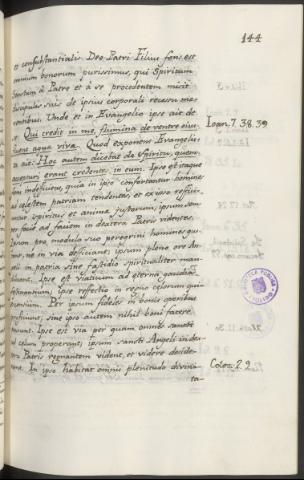 144
et consubstantialis Deo Patri Filius fons est
omnium bonorum purissimus, qui Spiritum
Sanctum à Patre et à se procedentem misit
discipulis suis de ipsius corporali recessu mæ-
rentibus. Unde et in Evangelio ipse ait de
se: Qui credit in me, flumina de ventre eius
fluent aquæ vivæ. Quod exponens Evangelis-
ta ait: Hoc autem dicebat de Spiritu, quem
accepturi erant credentes in eum. Ipse est itaque
fons indeficiens, quia in ipso confortantur homines
ad cælestem patriam tendentes, et ex ipso reffici-
untur spiritus et animæ justorum, ipsum
facie ad faciem in dextera Patris videntes.
Ipsum pro modulo suo peregrini homines gus-
tant, ne in via deficiant; ipsum pleno ore An-
geli in patria sine fastidio spiritualiter man-
ducant. Ipse est viaticum ad æterna gaudia
festinantium; ipse refectio in regno cælorum qui-
escentium. Per ipsum fideles in bonis operibus
proficiunt, sine ipso autem nihil boni facere
possunt. Ipse est via per quam omnes sancti
ad cælum properant; ipsum sancti Angeli in dex-
tera Patris regnantem vident, et videre deside-
rant. In ipso habitat omnis plenitudo divini-
ta-
Ioan. 7. 38. 39
Colos. 2. 9.